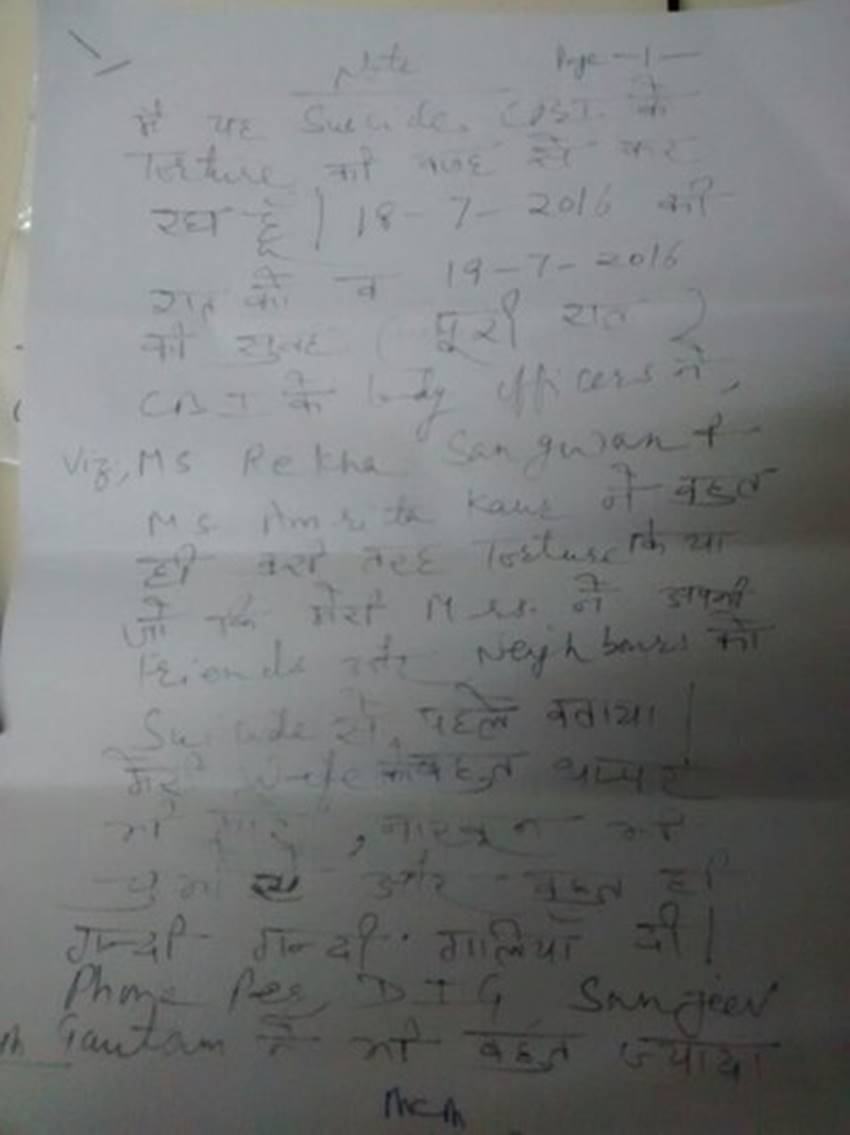 Note Page -1-
मैं यह Suicide, CBI के
Torture की वजह से कर
रहा हूँ | 18-7-2016 की
रात को व 19-7-2016
की सुबह (पूरी रात)
CBI के lady officers ने,
Viz, MS Rekha Sangwan +
MS. Amrita Kaur ने बहुत
ही बुरी तरह Torture किया
जो कि मेरी Mrs. ने अपनी
Friends और Neighbours को
Suicide से पहले बताया |
मेरी Wife को बहुत थप्पड़
भी मारे, नाखून भी
चुभोये और बहुत ही
गन्दी गन्दी गालियाँ दी |
Phone पर, DIG Sanjeev
Gautam ने भी बहुत ज्यादा